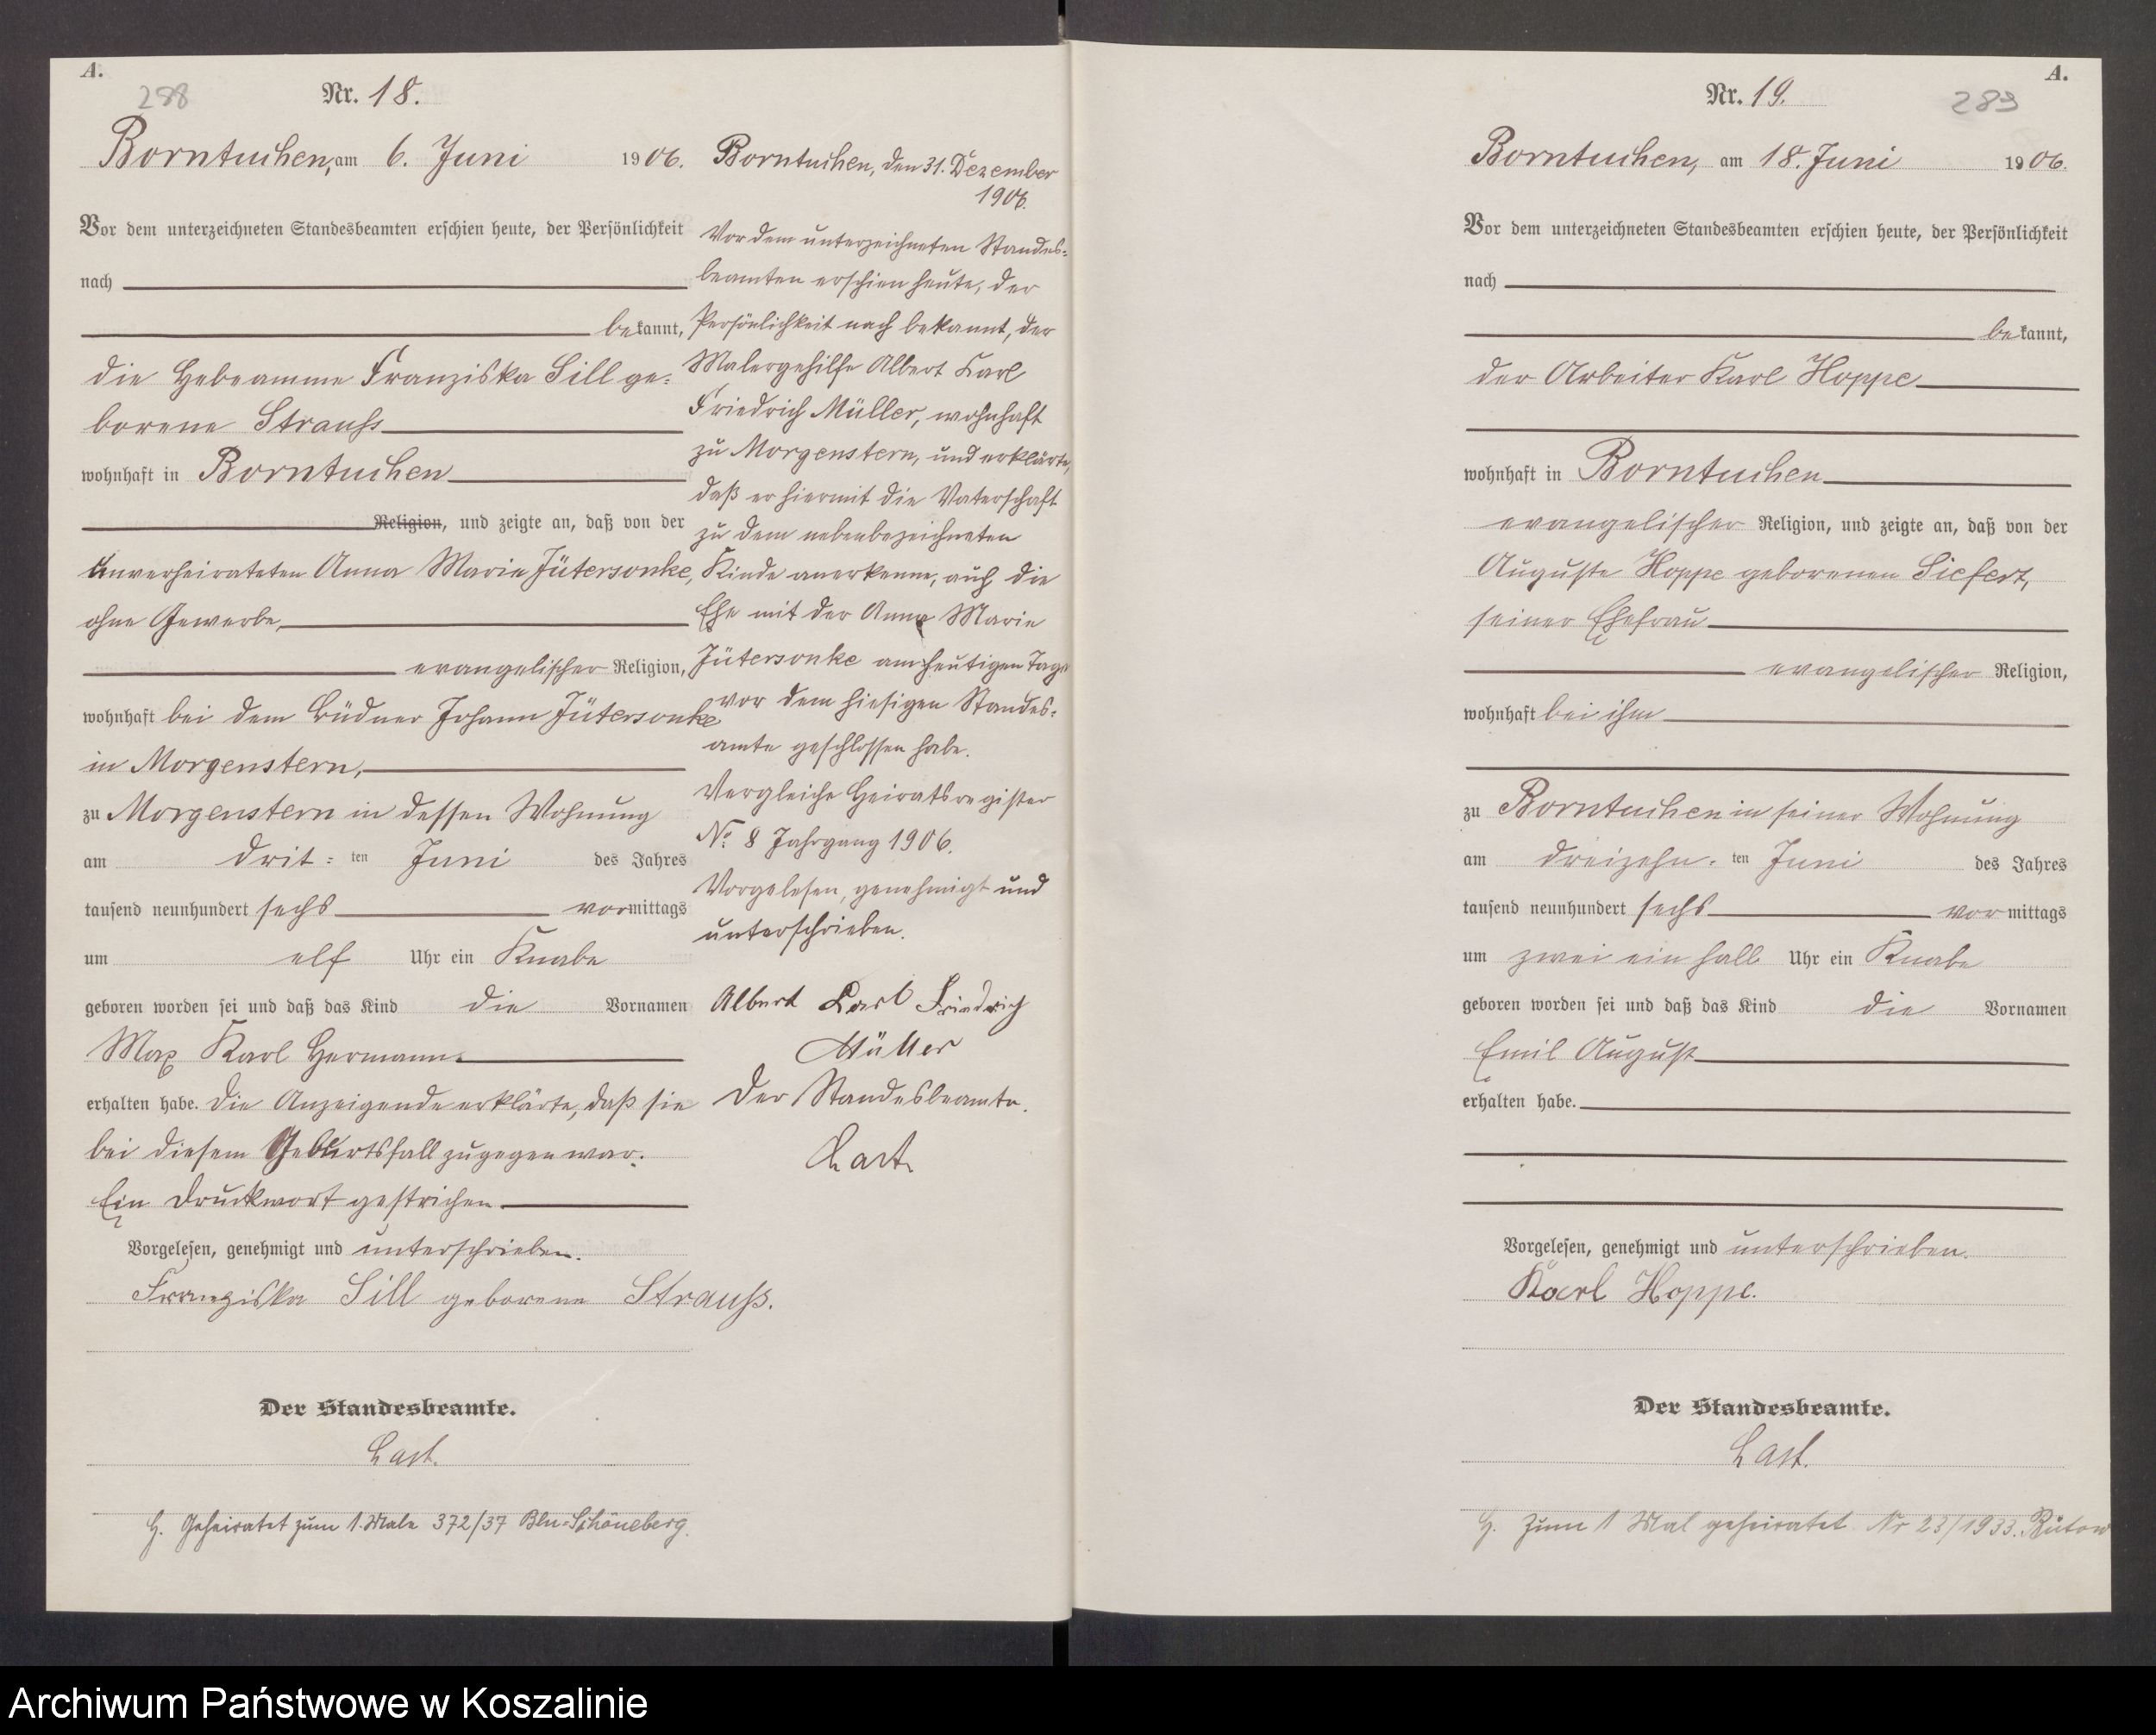 A.
288
Nr. 18.
Borntuchen, am 6. Juni 1906.
Vor dem unterzeichneten Standesbeamten erschien heute, der Persönlichkeit
nach
bekannt,
die Hebeamme Franziska Sill ge-
borene Strauss
wohnhaft in Borntuchen
Religion, und zeigte an, daß von der
unverheirateten Anna Marie Jütersonke,
ohne Gewerbe,
evangelischer Religion,
wohnhaft bei dem Büdner Johann Jütersonke
in Morgenstern,
zu Morgenstern in dessen Wohnung
am drit-ten Juni des Jahres
tausend neunhundert sechs vormittags
um elf Uhr ein Knabe
geboren worden sei und daß das Kind die Vornamen
Max Karl Hermann
erhalten habe. Die Anzeigende erklärte, daß sie
bei diesem Geburtsfall zugegen war.
Ein Druckwort gestrichen
Vorgelesen, genehmigt und unterschrieben.
Franziska Sill geborene Strauss.
Der Standesbeamte.
Last.
H. Geheiratet zum 1. Male 372/37 Bln-Schöneberg.
Borntuchen, den 31. Dezember
1906.
Vor dem unterzeichneten Standes-
beamten erschien heute, der
Persönlichkeit nach bekannt, der
Malergehilfe Albert Carl
Friedrich Müller, wohnhaft
zu Morgenstern, und erklärte,
daß er hiermit die Vaterschaft
zu dem nebenbezeichneten
Kinde anerkenne, auch die
Ehe mit der Anna Marie
Jütersonke am heutigen Tage
vor dem hiesigen Standes-
amte geschlossen habe.
Vergleiche Heiratsregister
No. 8 Jahrgang 1906.
Vorgelesen, genehmigt und
unterschrieben.
Albert Carl Friedrich
Müller
Der Standesbeamte.
Last.
A.
289
Nr. 19.
Borntuchen, am 18. Juni 1906.
Vor dem unterzeichneten Standesbeamten erschien heute, der Persönlichkeit
nach
bekannt,
der Arbeiter Karl Hoppe
wohnhaft in Borntuchen
evangelischer Religion, und zeigte an, daß von der
Auguste Hoppe geborenen Siefert,
seiner Ehefrau
evangelischer Religion,
wohnhaft bei ihm
zu Borntuchen in seiner Wohnung
am dreizehn-ten Juni des Jahres
tausend neunhundert sechs vormittags
um zwei ein halb Uhr ein Knabe
geboren worden sei und daß das Kind die Vornamen
Emil August
erhalten habe.
Vorgelesen, genehmigt und unterschrieben.
Karl Hoppe.
Der Standesbeamte.
Last.
H. Zum 1 Mal geheiratet Nr 23/1933. Bütow
Archiwum Państwowe w Koszalinie